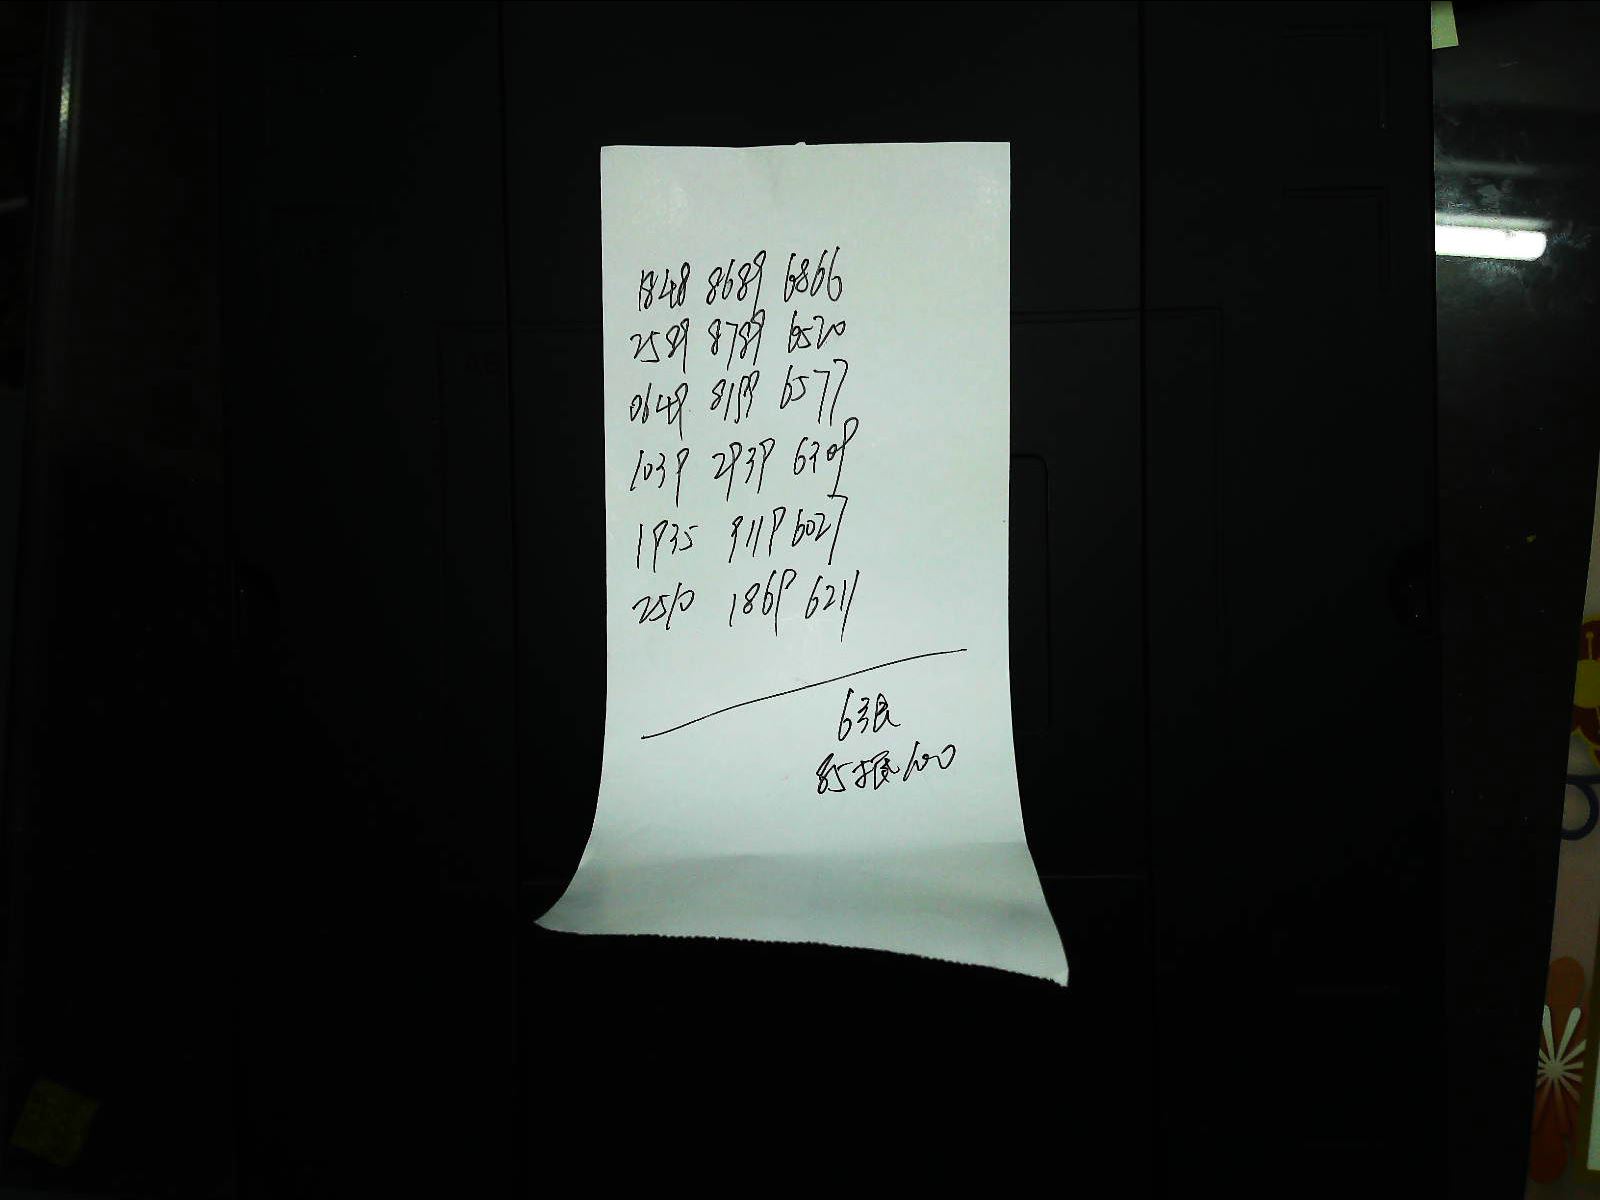 1848 8689 6866
2589 8789 6520
0649 8199 6577
1039 2939 6309
1935 9119 6027
2510 1869 6211